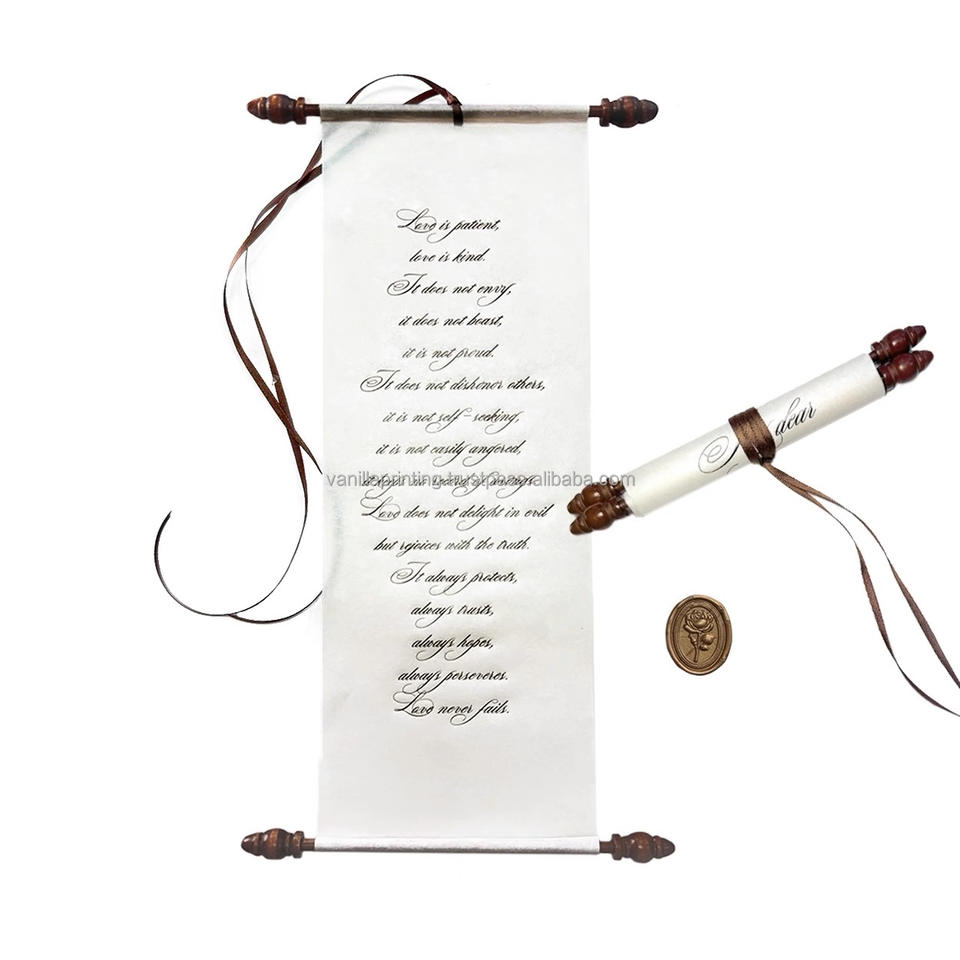 Love is patient,
love is kind.
It does not envy,
it does not boast,
it is not proud.
It does not dishonor others,
it is not self-seeking,
it is not easily angered,
it keeps no record of wrongs.
vanillaprinting.trustpass.alibaba.com
Love does not delight in evil
but rejoices with the truth.
It always protects,
always trusts,
always hopes,
always perseveres.
Love never fails.
dear